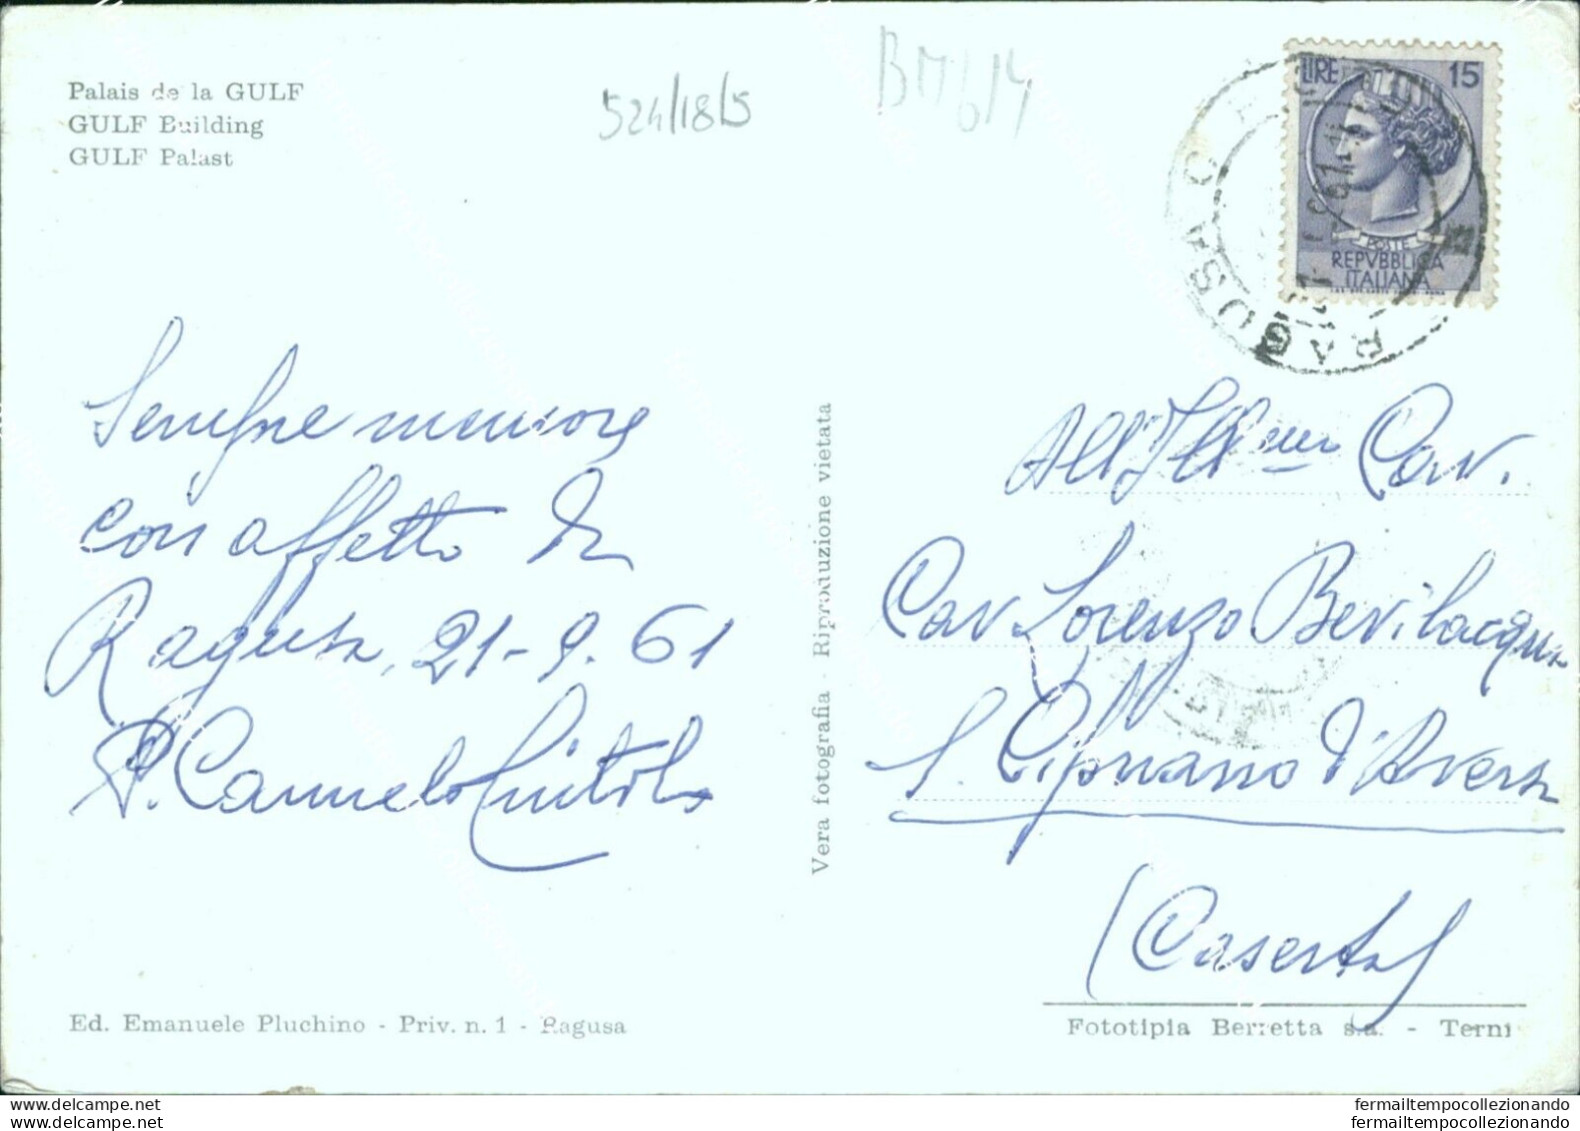 Palais de la GULF
GULF Building
GULF Palast
524/18/5
BM614
LIRE 15
POSTE
REPVBBLICA
ITALIANA
RAGUSA C
Sempre memore
con affetto da
Ragusa, 21-9-61
P. Carmelo
Vera fotografia - Riproduzione vietata
All'Ill.mo Cav.
Cav Lorenzo Bevilacqua
S. Cipriano d'Aversa
(Caserta)
Ed. Emanuele Pluchino - Priv. n. 1 - Ragusa
Fototipia Berretta s.a. - Terni
fermailtempocollezionando
fermailtempocollezionando
fermailtempocollezionando
fermailtempocollezionando